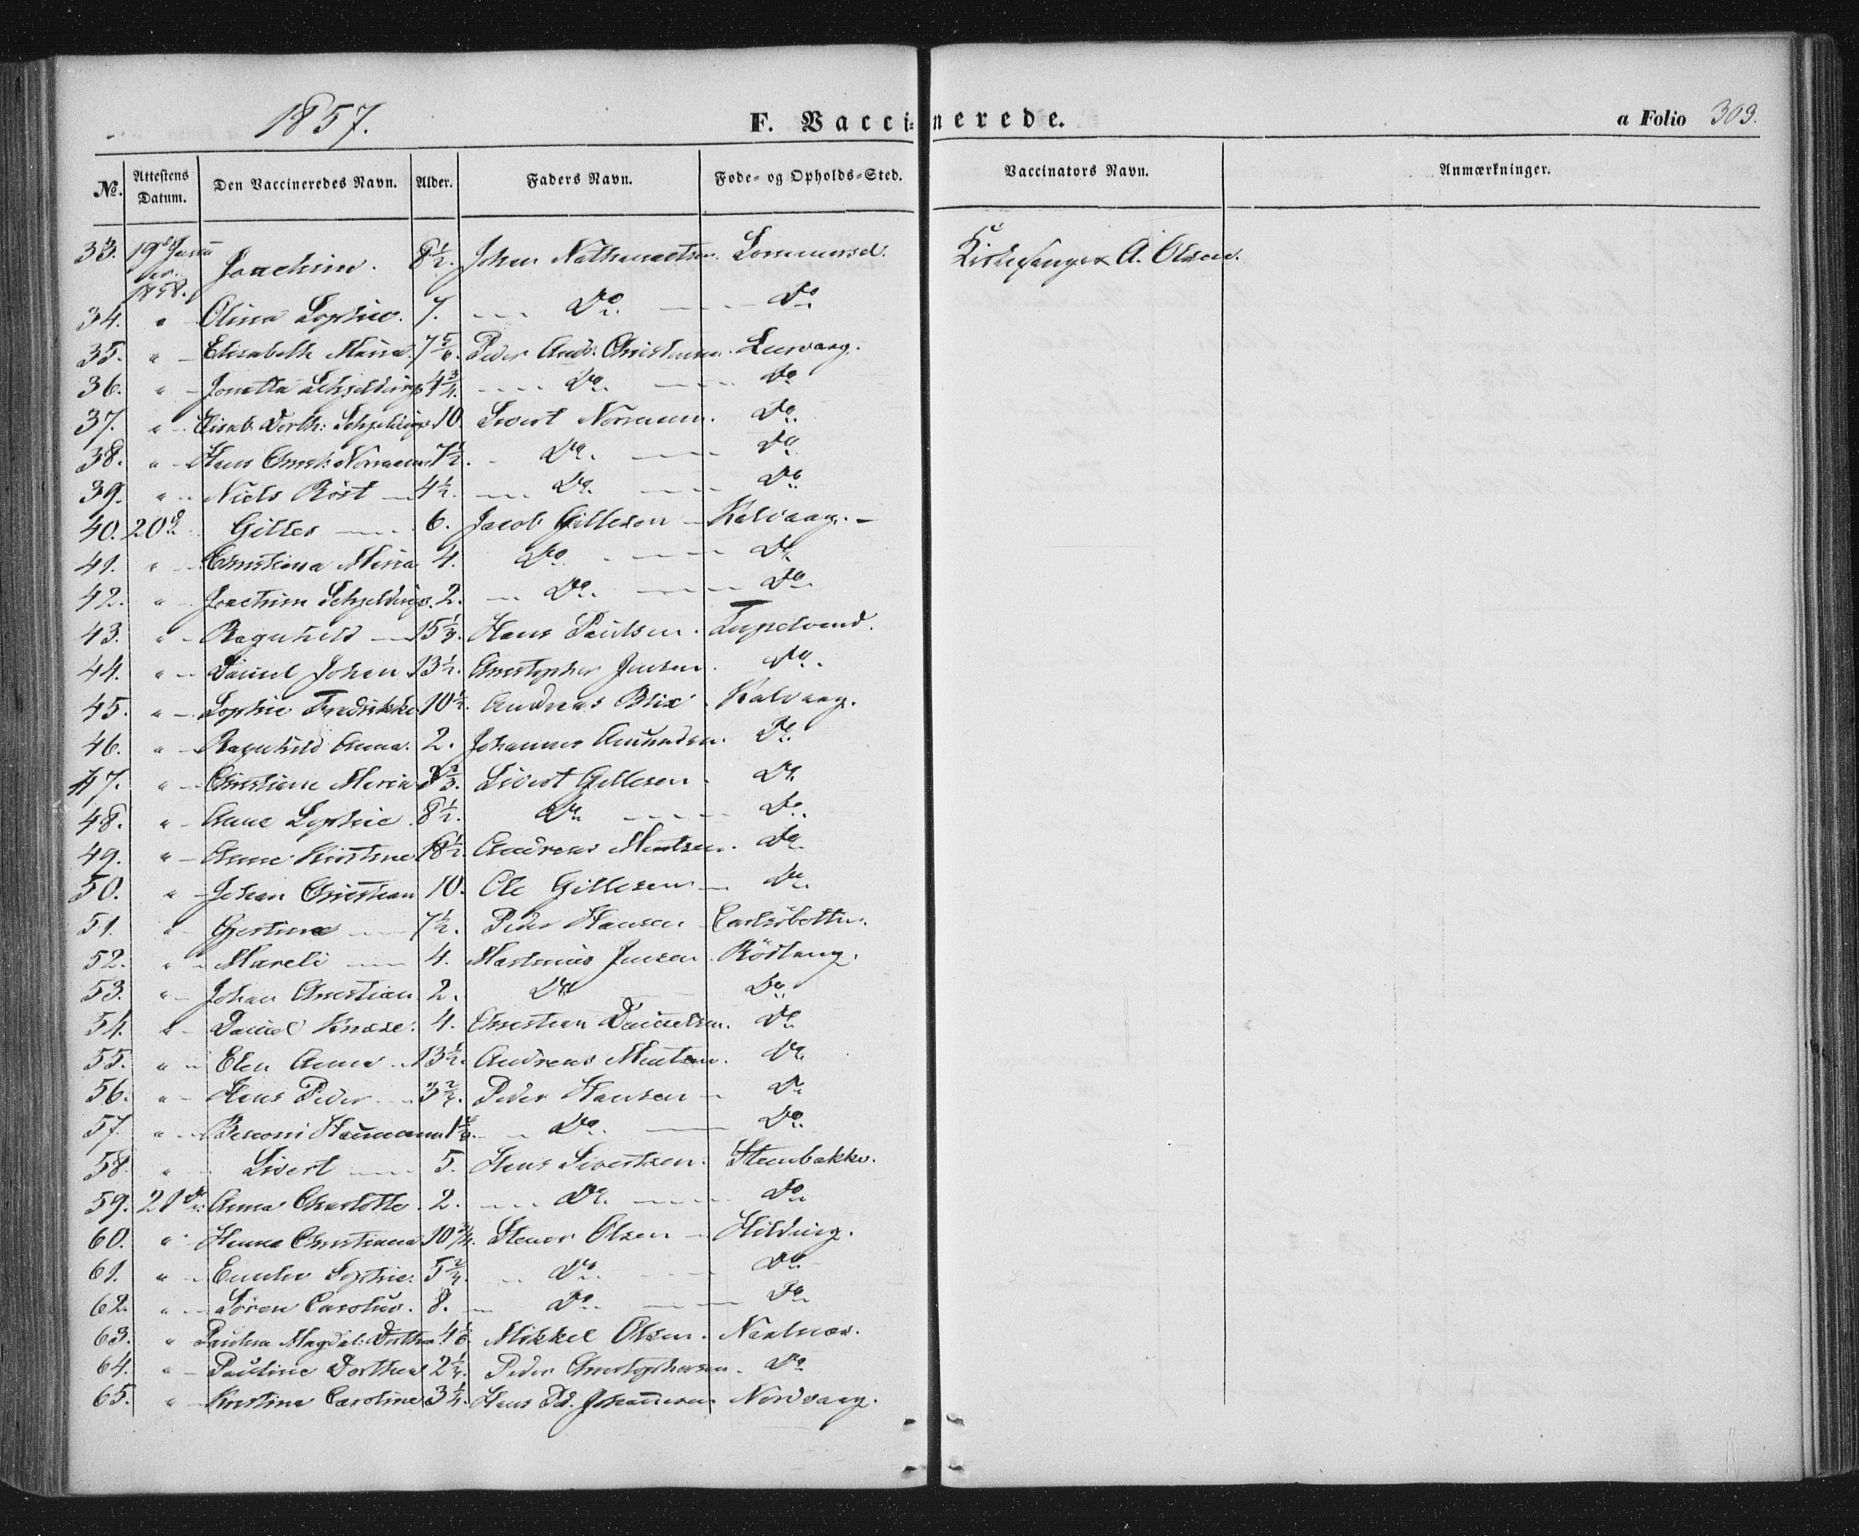 1857. F. Vaccinerede. a Folio 303.
No. Attestens Datum. Den Vaccineredes Navn. Alder. Faders Navn. Føde- og Opholds-Sted. Vaccinators Navn. Anmærkninger.
33. 19d 1858. Joachim. 8½. Johan Sommersel. Kirkesanger A. Olsen.
34. " Olina Sophie. 7. Do. Do
35. " Elisabeth Maria. 7 5/6. Peder Andr. Christensen. Leervaag.
36. " Jonetta Schjelderup 4¾. Do. Do
37. " Elisab. Dorth: Schjelderup 10. Sivert Normann. Do.
38. " Hans Christ. Normann 7½. Do. Do.
39. " Niels Röst 4½. Do. Do
40. 20d. Gittes 6. Jacob Gittesen Kalvaag.
41. " Christiana Maria 4. Do. Do.
42. " Joachim Schjelderup. 2. Do. Do.
43. " Ragnhild 15⅓. Hans Paulsen.
44. " Daniel Johan 13½. Christopher Jensen. Do.
45. " Sophie Fredrikke 10½. Andreas Blix Kalvaag.
46. " Ragnhild Anna. 2. Johannes Amundsen. Do.
47. " Christiane Maria Sivert Gittesen Do.
48. " Anne Sophie 8½. Do Do.
49. " Anne Kirstine Andreas Do.
50. " Johan Christian 10. Ole Gittesen Do.
51. " Gjertine 7½. Peder Hansen
52. " Mareli 4. Martinus Jensen Röstang.
53. " Johan Christian 2. Do Do
54. " Daniel 4. Christian Danielsen. Do
55. " Elen Anna 13½. Andreas Do.
56. " Hans Peder Peder Hansen Do
57. " Benoni Do. Do.
58. " Sivert 5. Hans Sivertsen. Steenbakke.
59. 21d. Anna Charlotte 2. Do. Do
60. " Hanna Christiana 10¾. Stener Olsen Hilding.
61. " Emelie Sophie. Do. Do
62. " Sören Carolus. 8. Do. Do
63. " Paulina Magdal: Dorthea Mikkel Olsen. Naalnæs.
64. " Pauline Dorthea Peder Christophersen. Do
65. " Kirstine Caroline 3¼. Hans Pd. Johannesen. Nordvaag.